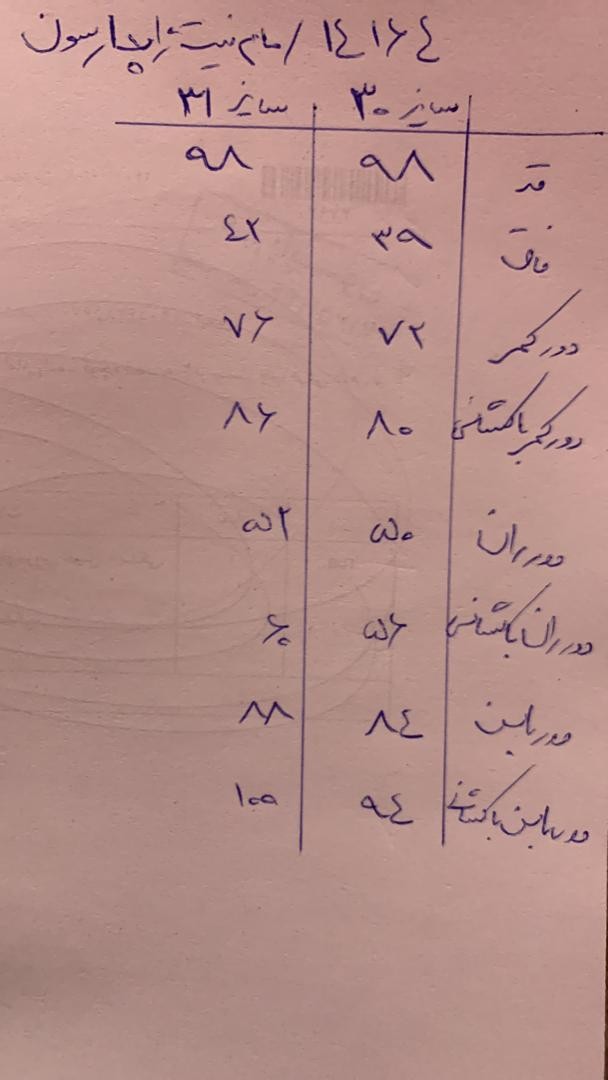 ۱٤۱۶٤ / مام فیت ژاپارسون
سایز ۳۰ سایز ۳۱
قد ۹۸ ۹۸
فاق ۳۹ ٤۲
دور کمر ۷۲ ۷۶
دور کمر با کشسانی ۸۰ ۸۶
دور ران ۵۰ ۵۲
دور ران با کشسانی ۵۶ ۶۰
دور باسن ۸٤ ۸۸
دور باسن با کشسانی ۹٤ ۱۰۰